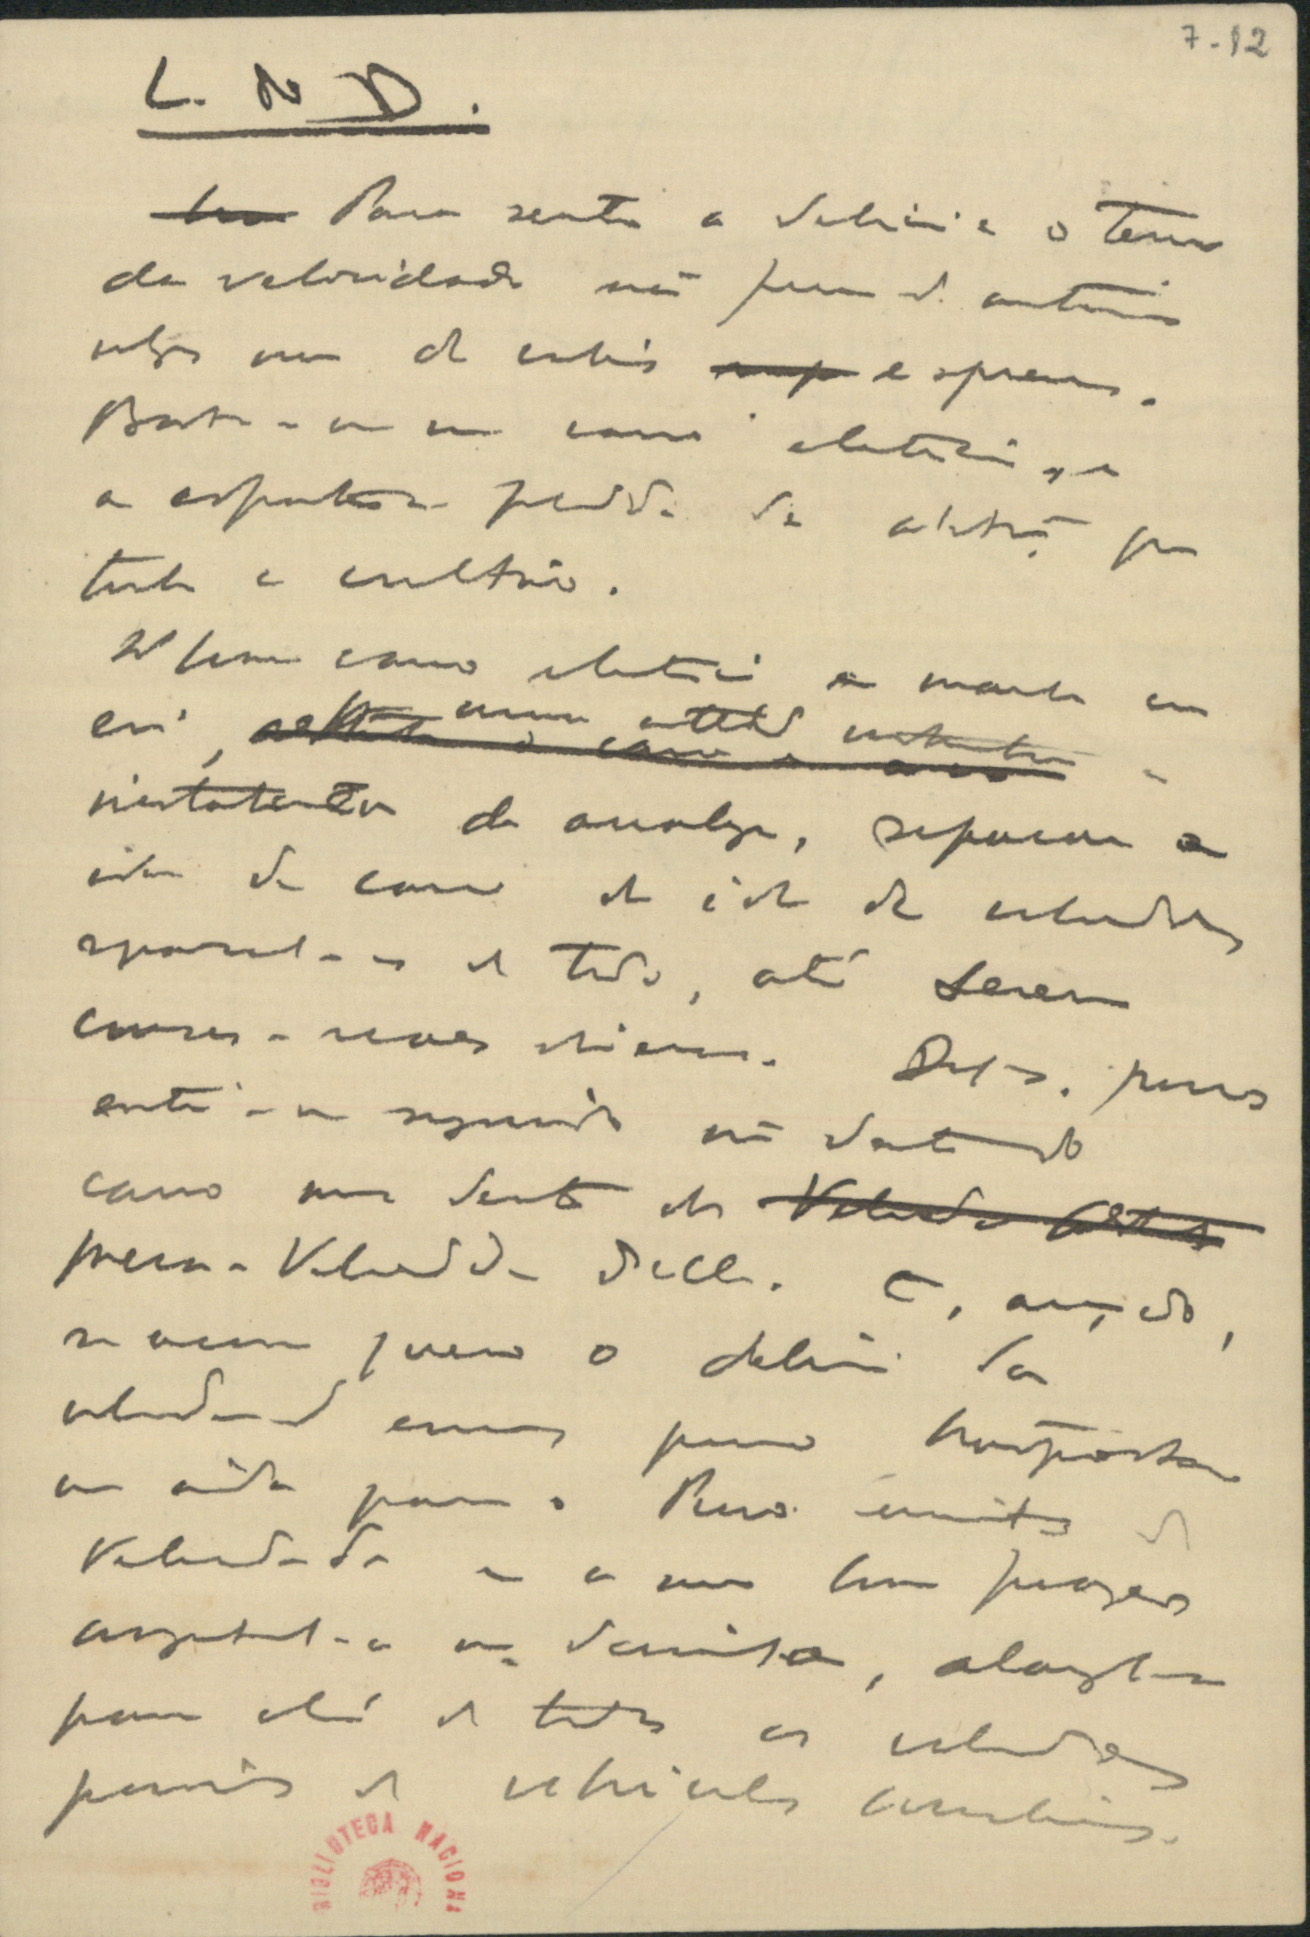 7-12
L. do D.
Para sentir a delicia e o terror
da velocidade não preciso de automoveis
velozes nem de comboios expressos.
Basta-me um carro electrico e
a espantosa faculdade de abstracção que
tenho e cultivo.
N'um carro electrico em marcha eu
sei, por uma attitude constante e
instantanea de analyse, separar a
idéa de carro da idéa de velocidade,
separal-as de todo, até serem
cousas-reaes diversas. Depois, posso
sentir-me seguindo não dentro do
carro mas dentro da
mera-Velocidade d'elle. E, cançado,
se acaso quero o delirio da
velocidade enorme, posso transportar
a idéa para o Puro imitar da
Velocidade e a meu bom prazer
augmental-a ou diminuil-a, alargal-a
para além de todas as velocidades
possiveis de vehiculos
BIBLIOTECA NACIONAL